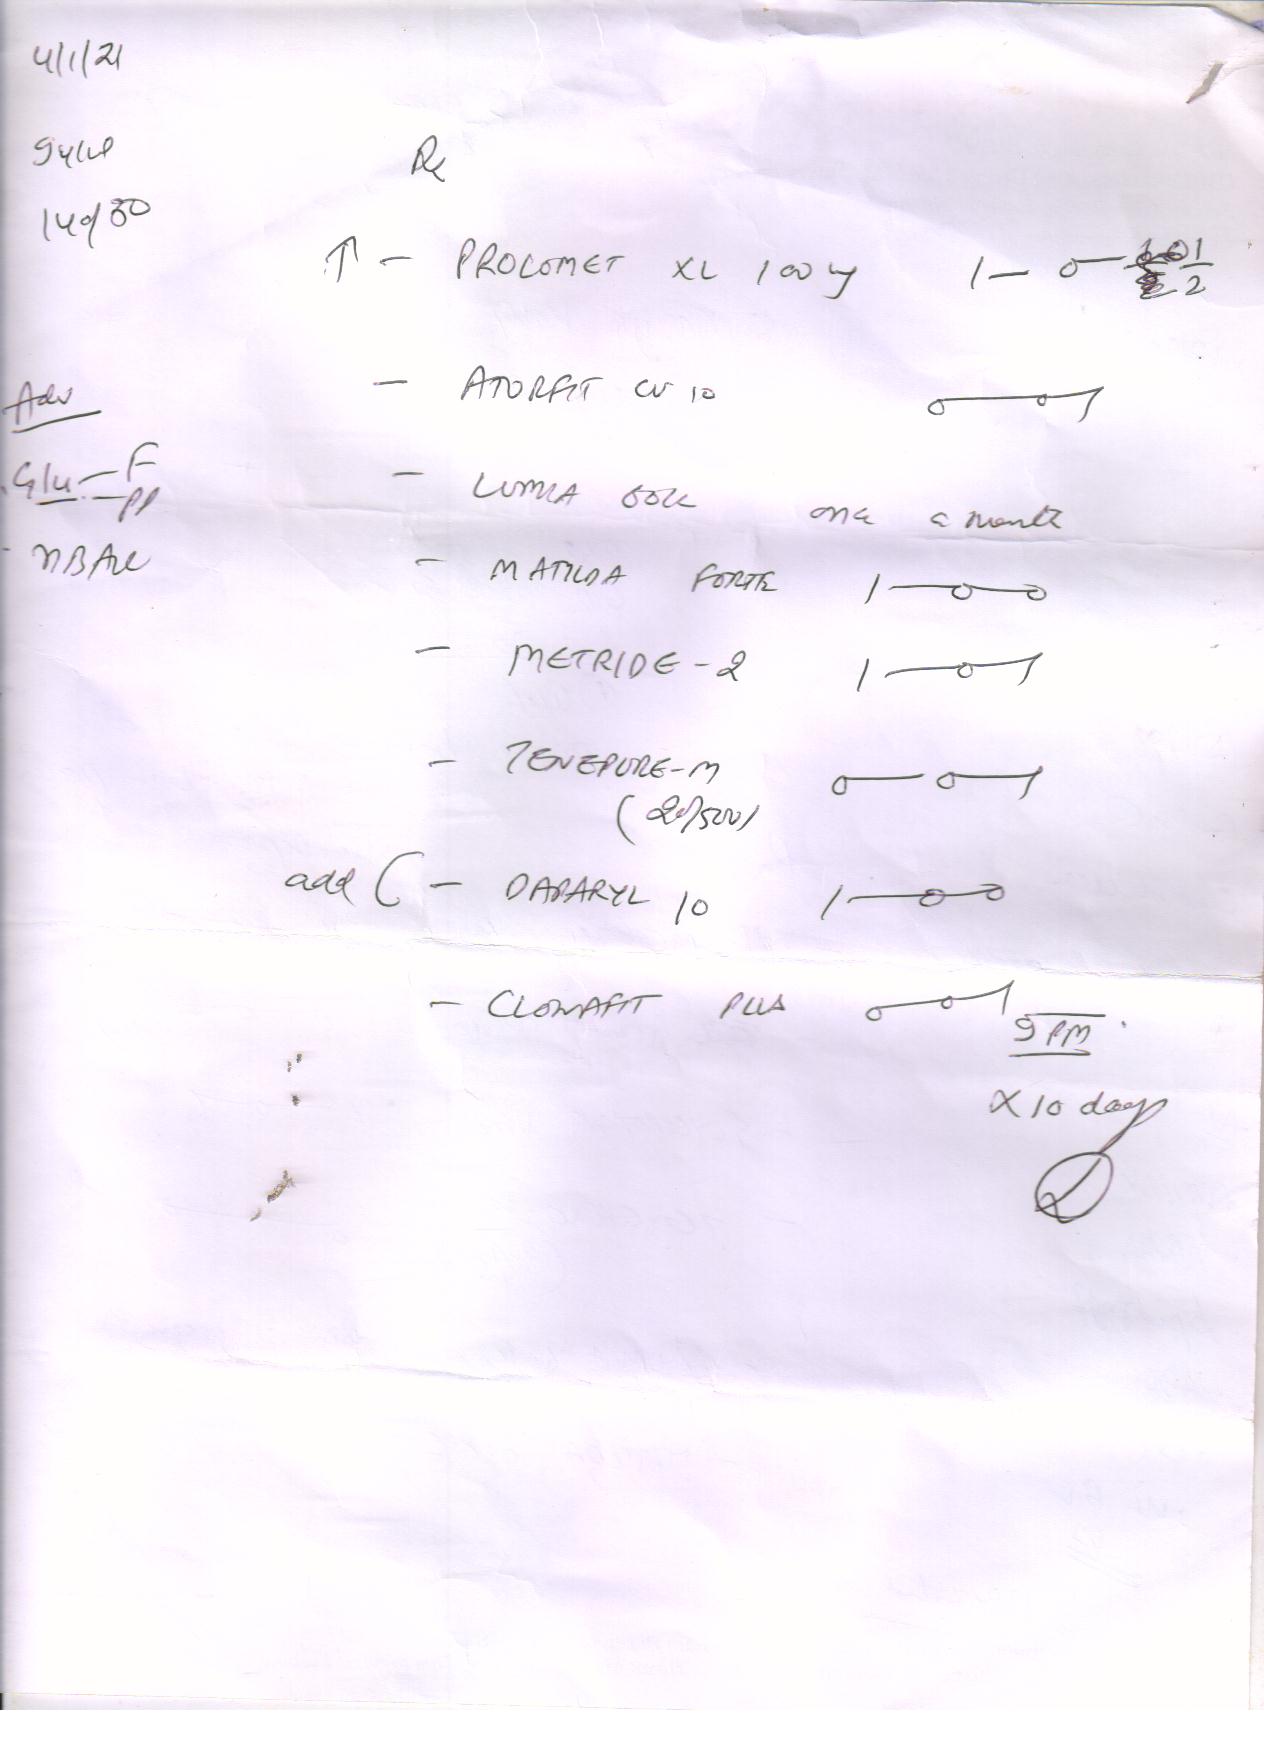 4/1/21
94kg
140/80
Rx
↑ - PROLOMET XL 100mg 1-0-1/2
Adv
- ATORFIT CV 10 0-0-1
Glu - F
- PP
- LUMIA 60K one a month
- HBA1c
- MATILDA FORTE 1-0-0
- METRIDE-2 1-0-1
- TENEPURE-M 0-0-1
(20/500)
add ( - DAPARYL 10 1-0-0
- CLONAFIT PLUS 0-0-1
9 PM
X 10 days